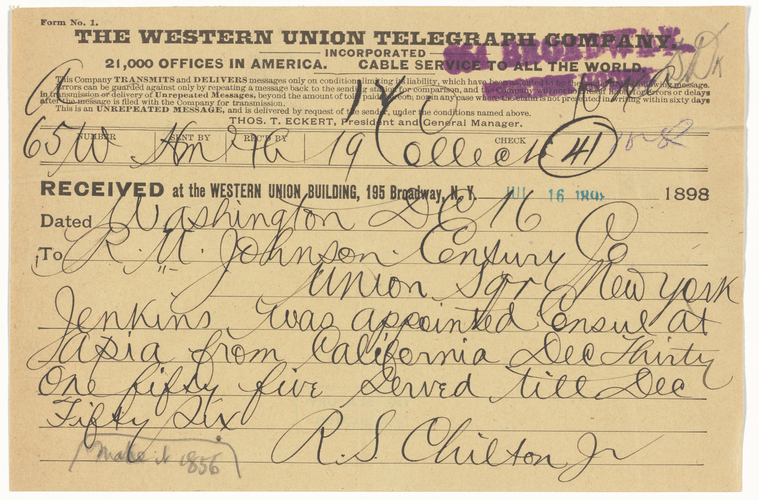 Form No. 1.
THE WESTERN UNION TELEGRAPH COMPANY.
INCORPORATED
21,000 OFFICES IN AMERICA. CABLE SERVICE TO ALL THE WORLD.
This Company TRANSMITS and DELIVERS messages only on conditions limiting its liability, which have been
Errors can be guarded against only by repeating a message back to the sending station for comparison, and the Company will not
in transmission or delivery of Unrepeated Messages, beyond the amount of tolls paid thereon, nor in any case where the claim is not presented in writing within sixty days
after the message is filed with the Company for transmission.
This is an UNREPEATED MESSAGE, and is delivered by request of the sender, under the conditions named above.
THOS. T. ECKERT, President and General Manager.
NUMBER SENT BY REC'D BY CHECK
65W 19 Collect 41
RECEIVED at the WESTERN UNION BUILDING, 195 Broadway, N. Y. JUL 16 1898 1898
Dated Washington DC 16
To R. U. Johnson. Century Co
Union Sqr New York
Jenkins was appointed Consul at
Lapia from California Dec Thirty
One fifty five Served till Dec
Fifty Six
R. S. Chilton Jr
make it 1856